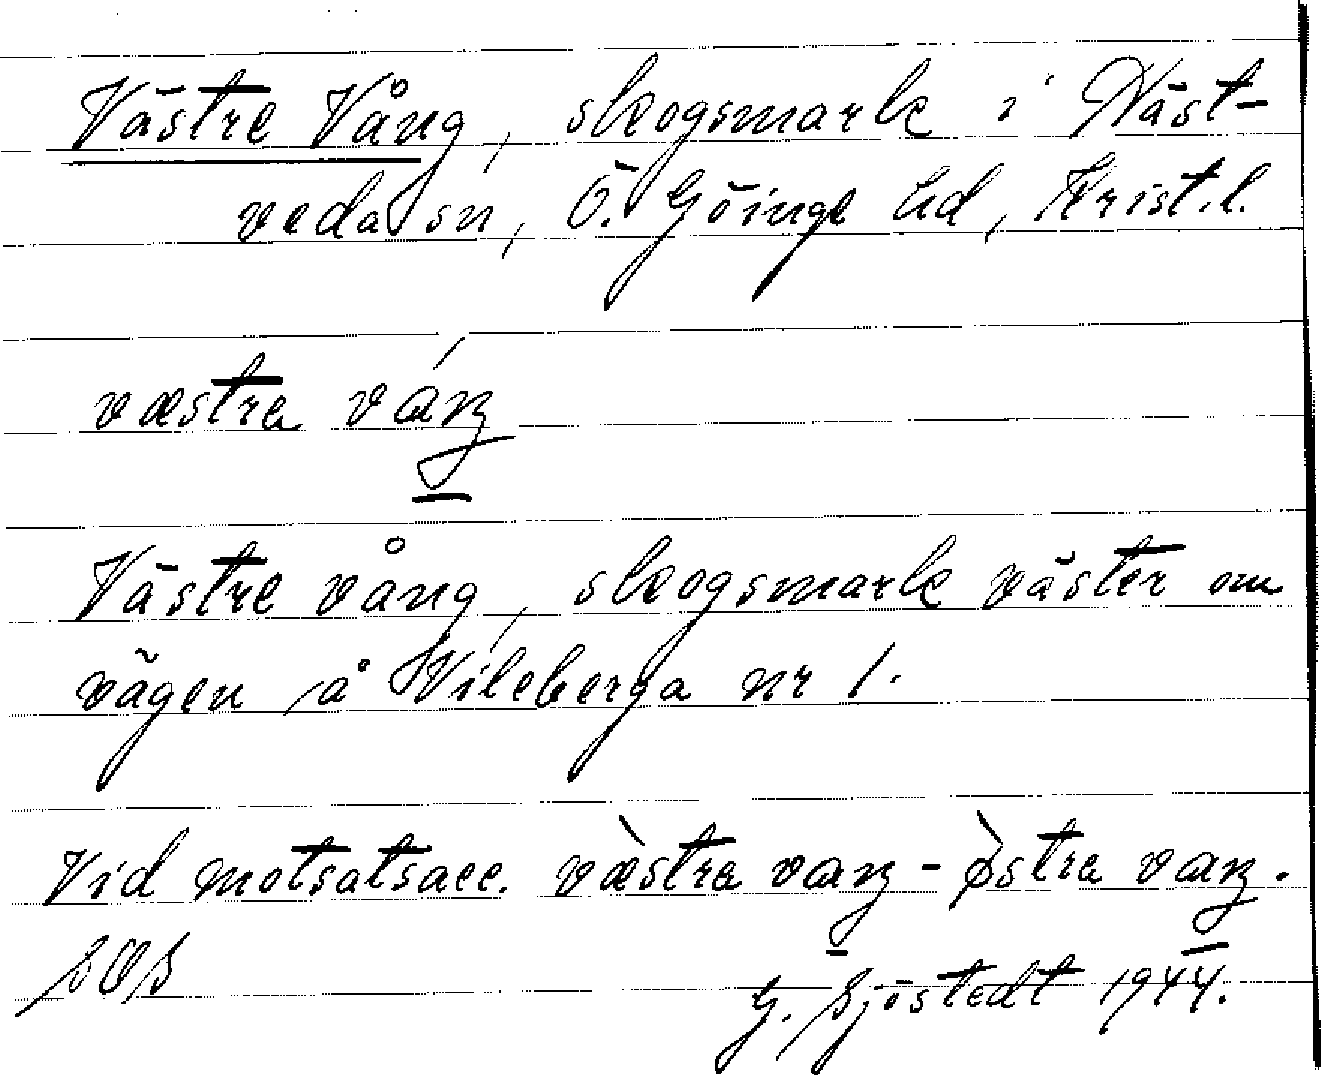 Västre Vång, skogsmark i Näst-
veda sn, Ö. Göinge hd, Krist.l.
væstra váŋ
Västre vång, skogsmark väster om
vägen å Vileberga nr 1.
Vid motsatsacc. væ̀stra vaŋ - ø̀stra vaŋ.
SOS
G. Sjöstedt 1944.